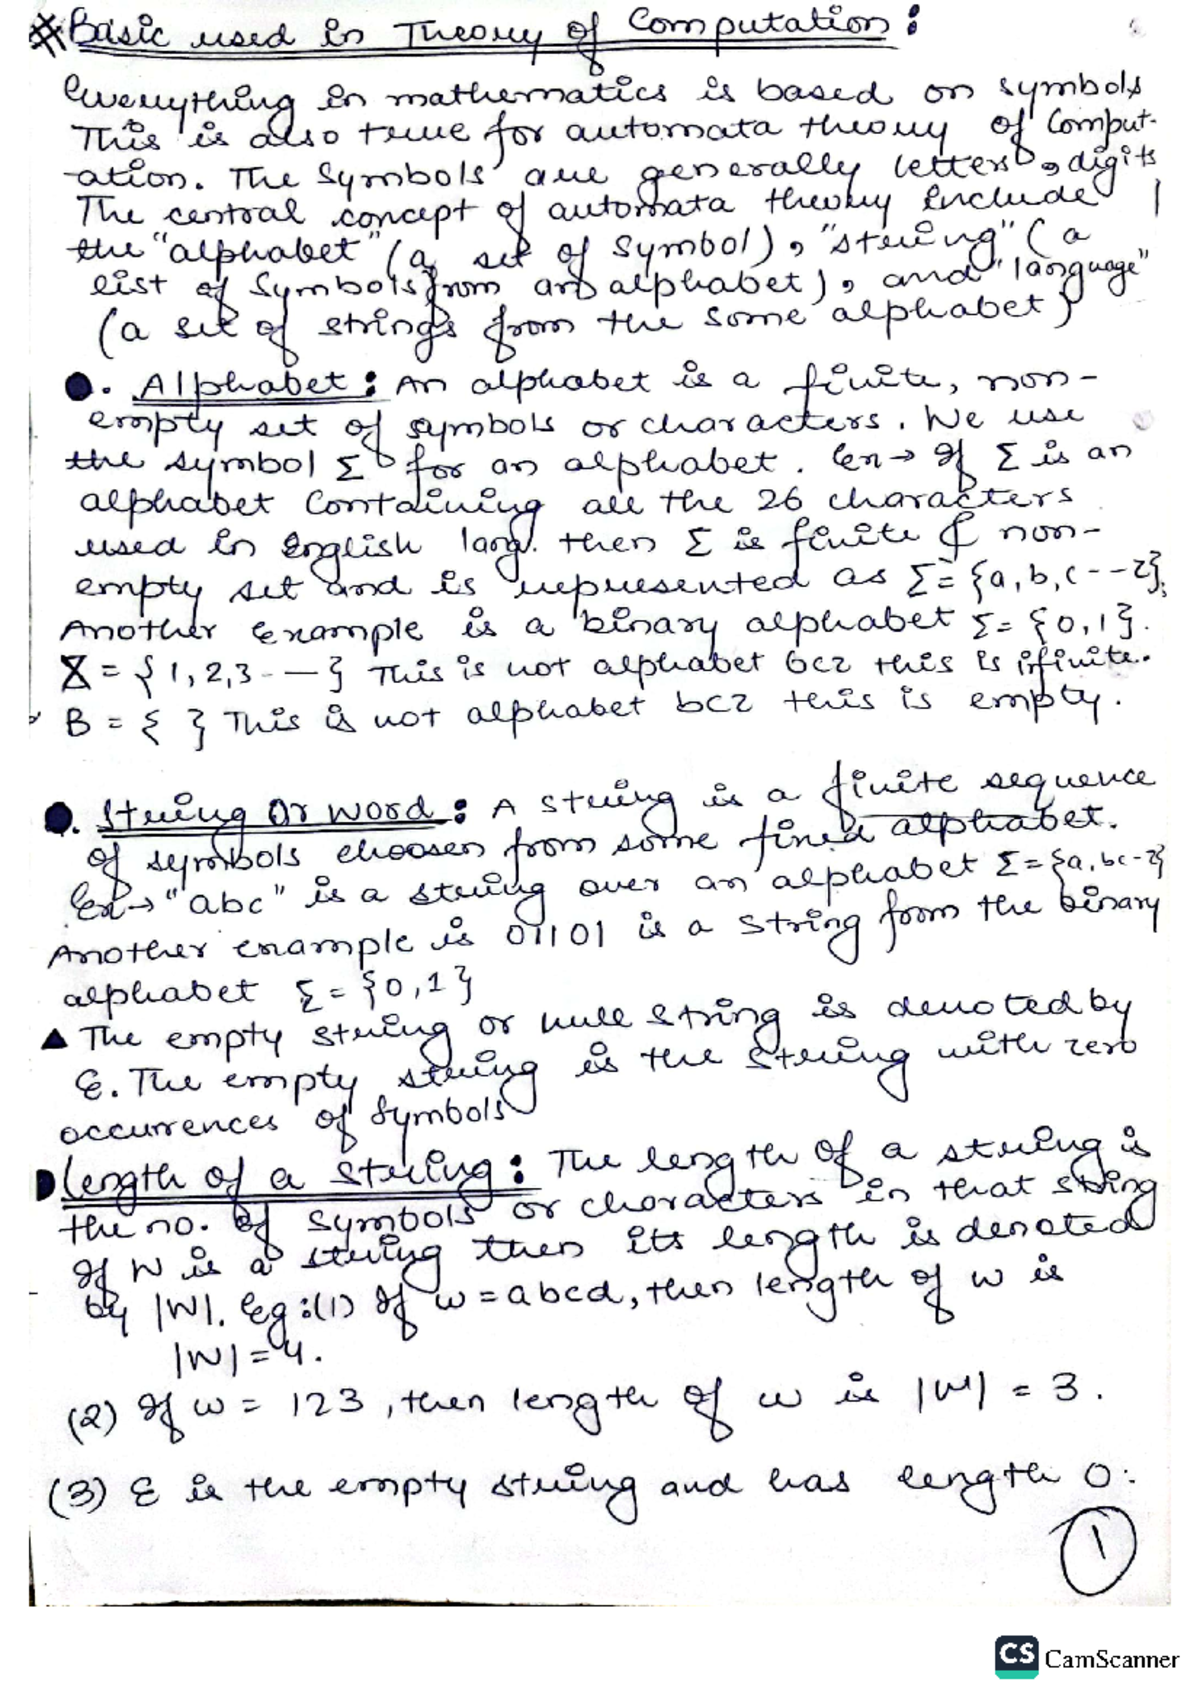 * Basic used in Theory of Computation :
Everything in mathematics is based on symbols
This is also true for automata theory of Comput-
-ation. The Symbols are generally letters, digits
The central concept of automata theory include
the "alphabet" (a set of symbol), "string" (a
list of Symbols from an alphabet), and "language"
(a set of strings from the some alphabet)
. Alphabet : An alphabet is a finite, non-
empty set of symbols or characters. We use
the symbol Σ for an alphabet. Ex→ If Σ is an
alphabet Containing all the 26 characters
used in English lang. then Σ is finite & non-
empty set and is represented as Σ = {a, b, c --z}.
Another Example is a binary alphabet Σ = {0,1}.
X = {1,2,3 - —} This is not alphabet bcz this is ifinite.
B = { } This is not alphabet bcz this is empty.
. String Or Word : A string is a finite sequence
of symbols choosen from some fixed alphabet.
Ex→ "abc" is a string over an alphabet Σ = {a, bc - z}
Another example is 01101 is a string form the binary
alphabet Σ = {0,1}
▲ The empty string or null string is denoted by
ε. The empty string is the string with zero
occurrences of Symbols
Length of a String : The length of a string is
the no. of symbols or characters in that string
If W is a string then its length is denoted
by |W|. Eg :(1) If w = abcd, then length of w is
|W| = 4.
(2) If w = 123, then length of w is |W| = 3.
(3) ε is the empty string and has length 0.
1
CS CamScanner